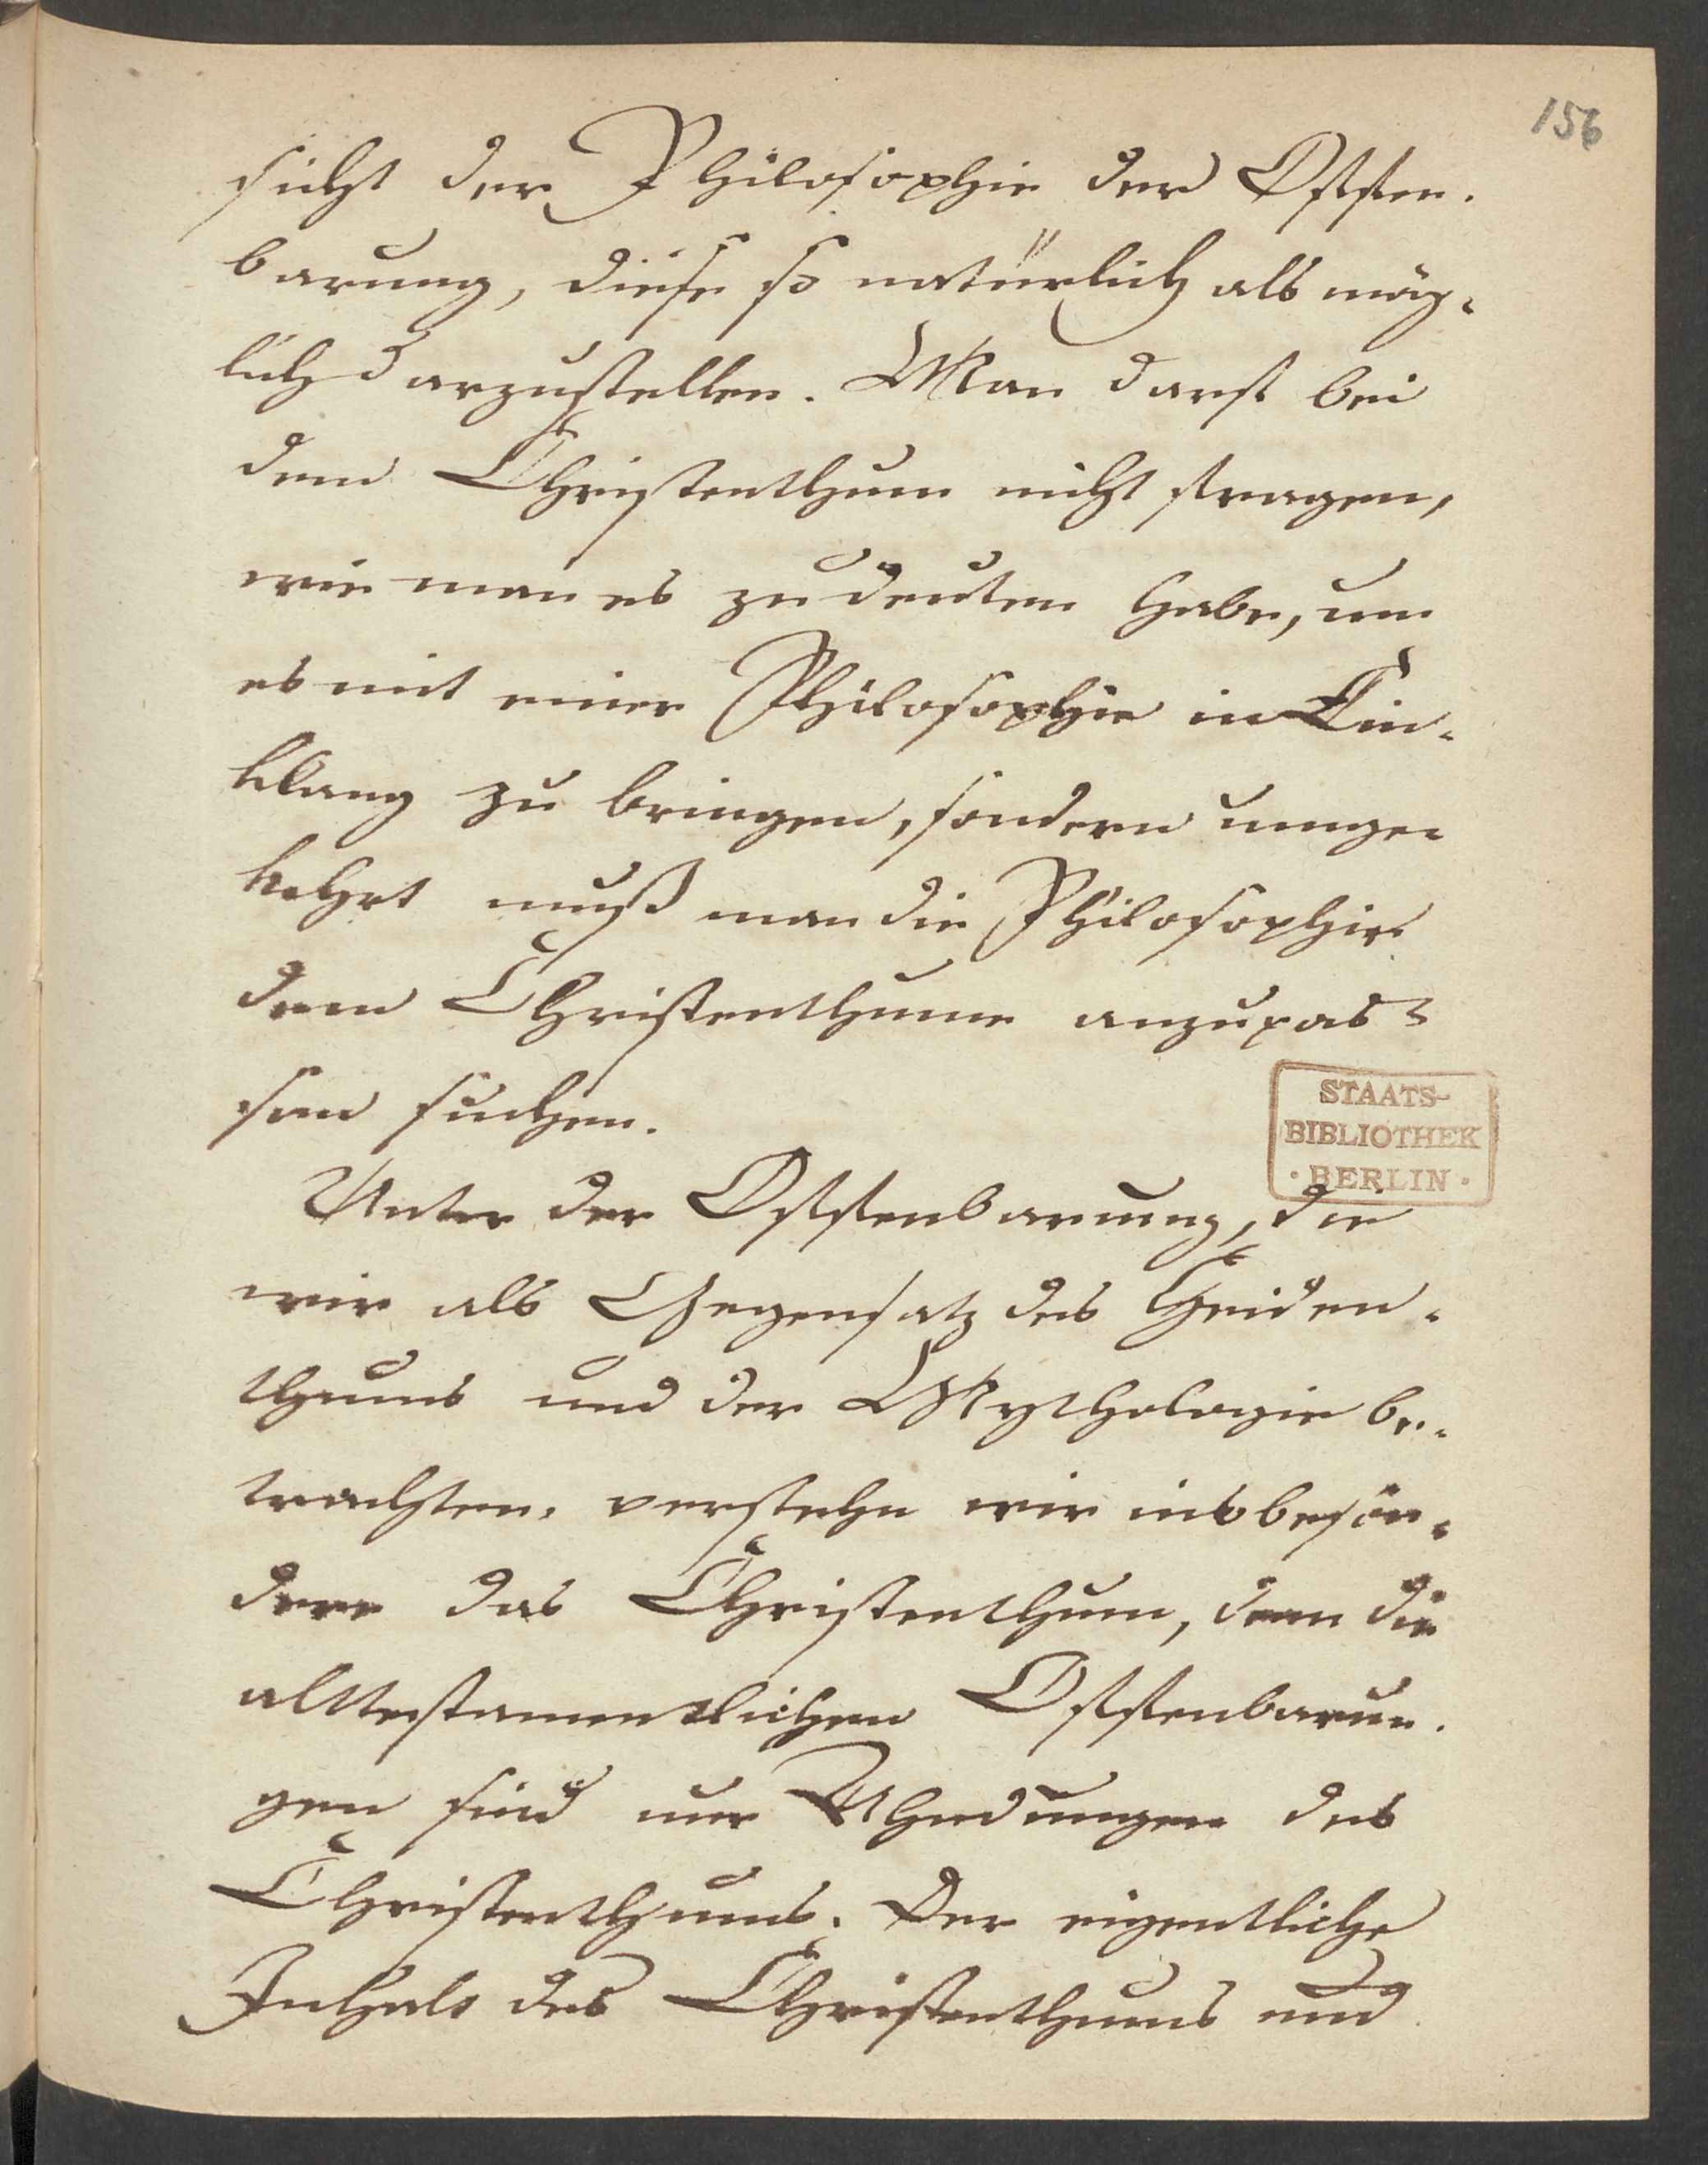 156
sicht der Philosophie der Offen-
barung, diese so natürlich als mög-
lich darzustellen. Man darf bei
dem Christenthum nicht fragen,
wie man es zu deuten habe, um
es mit einer Philosophie in Ein-
klang zu bringen, sondern umge-
kehrt muß man die Philosophie
dem Christenthume anzupas-
sen suchen.
STAATS-
BIBLIOTHEK
· BERLIN ·
Unter der Offenbarung, die
wir als Gegensatz des Heiden-
thums und der Mythologie be-
trachten, verstehn wir insbeson-
dere das Christenthum, denn die
alttestamentlichen Offenbarun-
gen sind nur Ahndungen des
Christenthums. Der eigentliche
Inhalt des Christenthums und